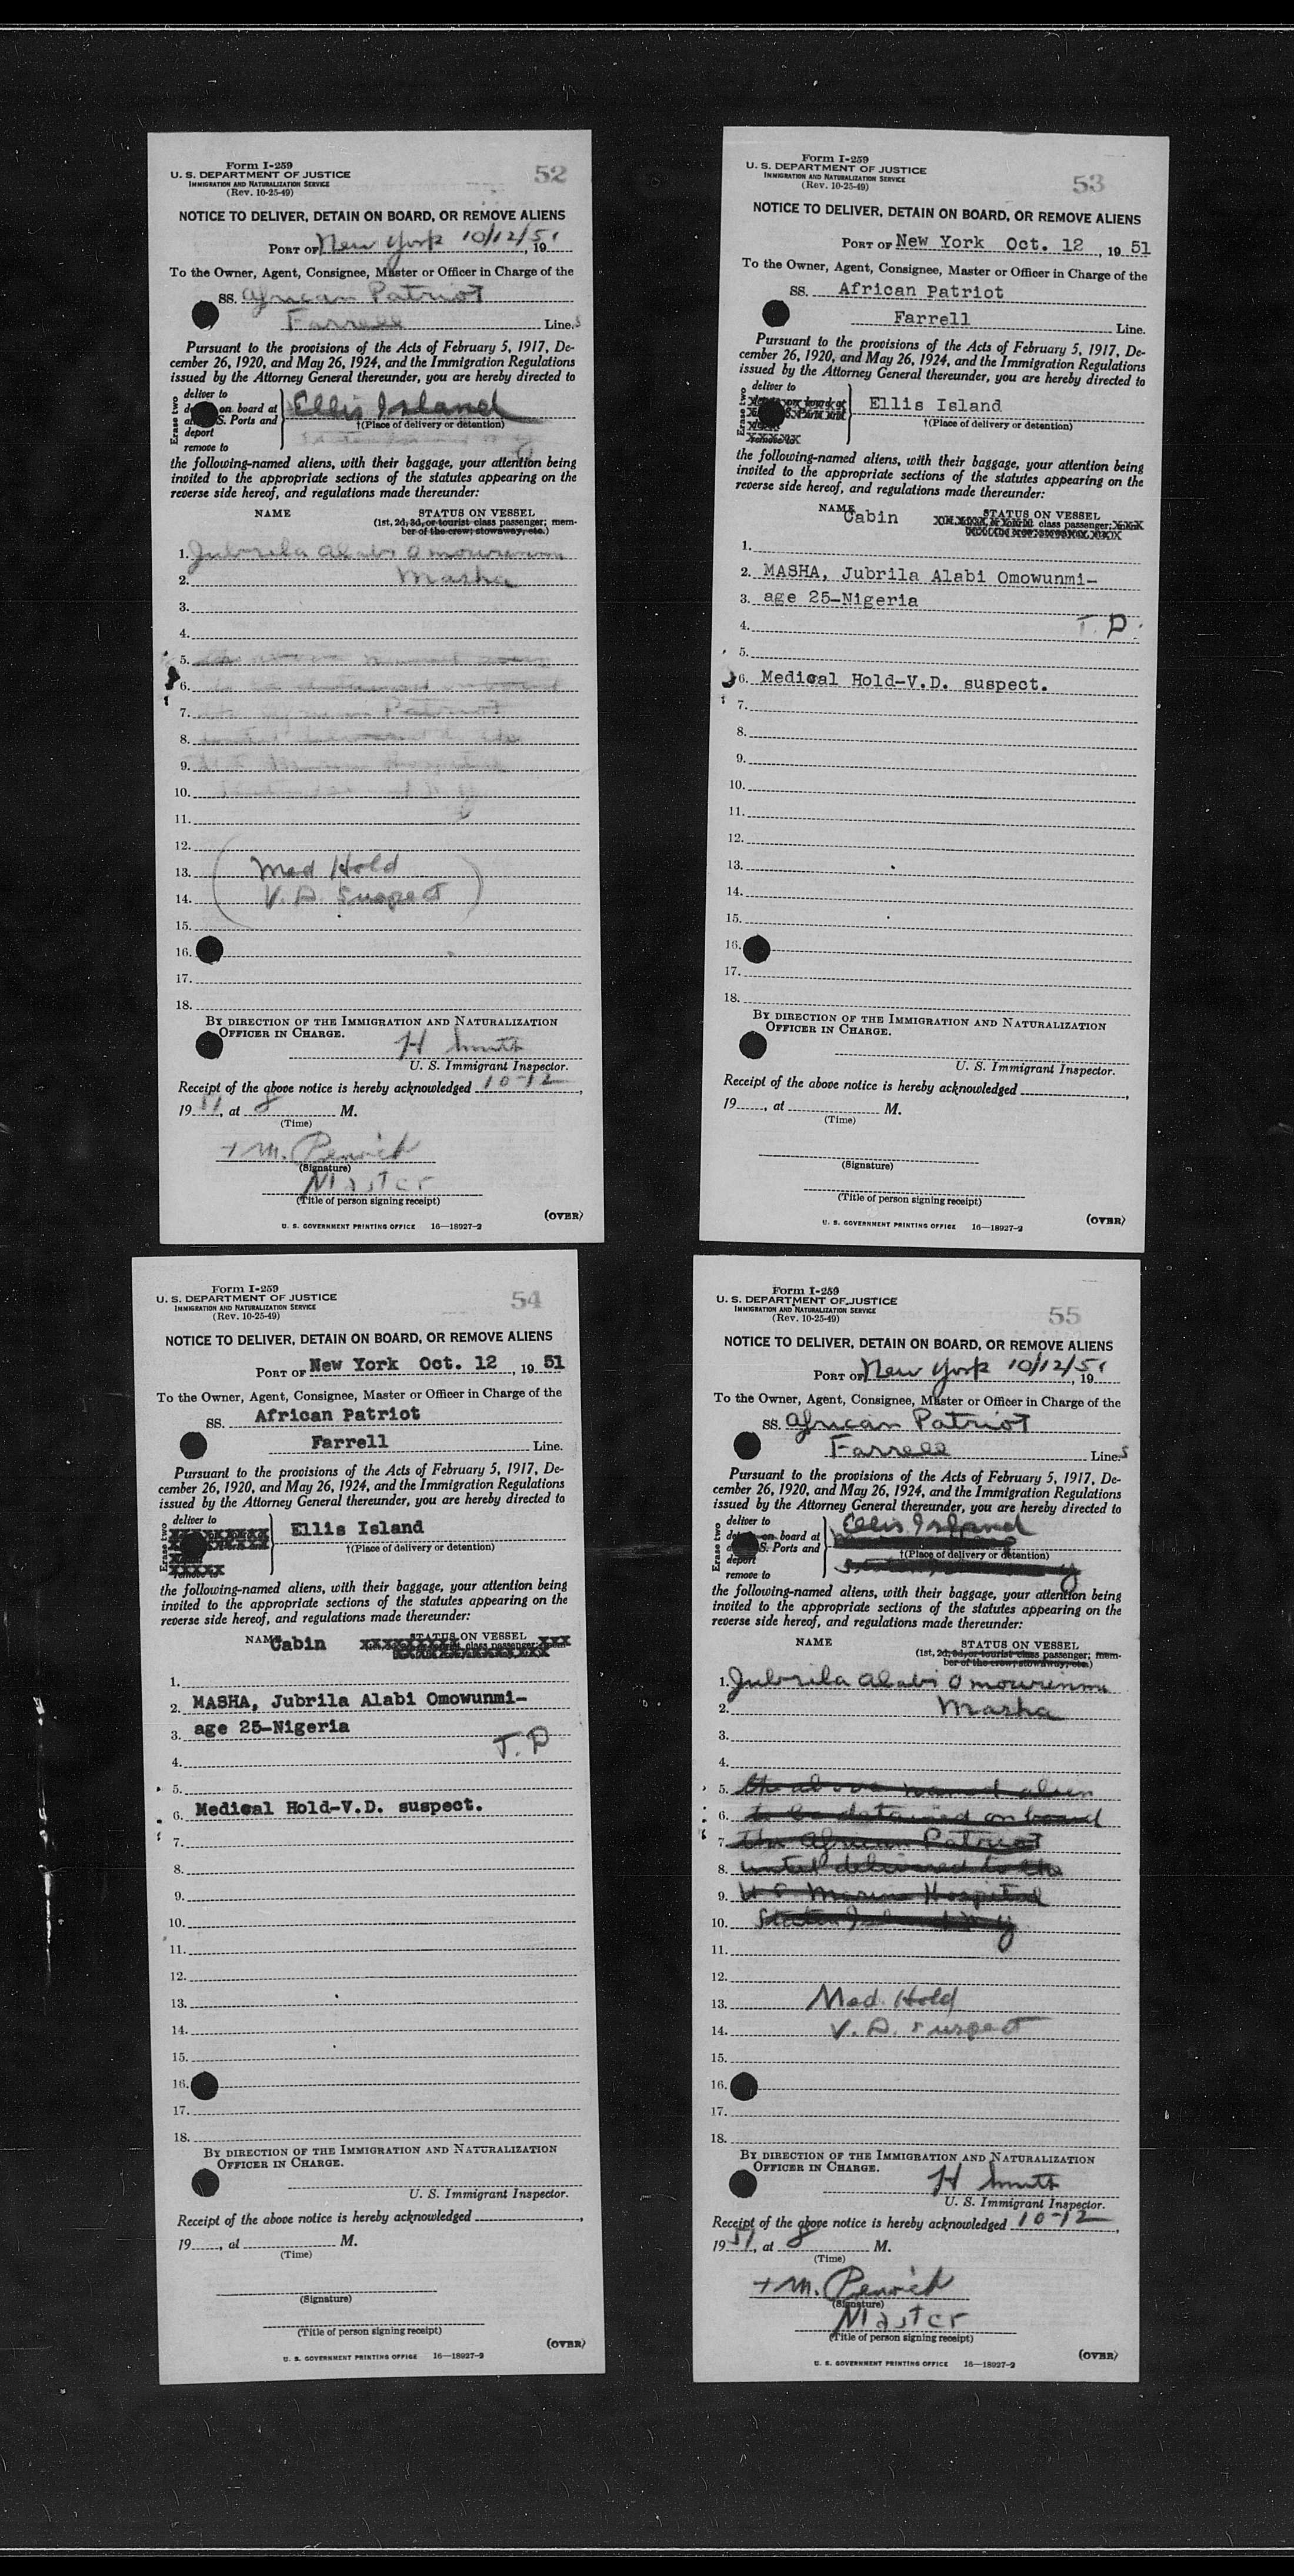 Form I-259
U. S. DEPARTMENT OF JUSTICE
IMMIGRATION AND NATURALIZATION SERVICE
(Rev. 10-25-49)
52
NOTICE TO DELIVER, DETAIN ON BOARD, OR REMOVE ALIENS
PORT OF New York 10/12/51, 19
To the Owner, Agent, Consignee, Master or Officer in Charge of the
SS. African Patriot
Farrell Line.s
Pursuant to the provisions of the Acts of February 5, 1917, De-
cember 26, 1920, and May 26, 1924, and the Immigration Regulations
issued by the Attorney General thereunder, you are hereby directed to
Erase two
deliver to
on board at
S. Ports and
deport
remove to
Ellis Island
†(Place of delivery or detention)
the following-named aliens, with their baggage, your attention being
invited to the appropriate sections of the statutes appearing on the
reverse side hereof, and regulations made thereunder:
NAME STATUS ON VESSEL
(1st, 2d, 3d, or tourist class passenger; mem-
ber of the crew; stowaway, etc.)
1. Jubrila Alabi Omowunmi
2. Masha
3.
4.
5.
6.
7. Patriot
8.
9.
10.
11.
12.
13. Med Hold
14. V. D. Suspect
15.
16.
17.
18.
BY DIRECTION OF THE IMMIGRATION AND NATURALIZATION
OFFICER IN CHARGE.
H Smith
U. S. Immigrant Inspector.
Receipt of the above notice is hereby acknowledged 10-12,
1951, at 8 M.
(Time)
+ M.
(Signature)
Master
(Title of person signing receipt)
(OVER)
U. S. GOVERNMENT PRINTING OFFICE 16—18927-2
Form I-259
U. S. DEPARTMENT OF JUSTICE
IMMIGRATION AND NATURALIZATION SERVICE
(Rev. 10-25-49)
53
NOTICE TO DELIVER, DETAIN ON BOARD, OR REMOVE ALIENS
PORT OF New York Oct. 12, 19 51
To the Owner, Agent, Consignee, Master or Officer in Charge of the
SS. African Patriot
Farrell Line.
Pursuant to the provisions of the Acts of February 5, 1917, De-
cember 26, 1920, and May 26, 1924, and the Immigration Regulations
issued by the Attorney General thereunder, you are hereby directed to
Erase two
deliver to
remove to
Ellis Island
†(Place of delivery or detention)
the following-named aliens, with their baggage, your attention being
invited to the appropriate sections of the statutes appearing on the
reverse side hereof, and regulations made thereunder:
NAME Cabin STATUS ON VESSEL
class passenger;
1.
2. MASHA, Jubrila Alabi Omowunmi-
3. age 25-Nigeria
4. T. D.
5.
6. Medical Hold-V.D. suspect.
7.
8.
9.
10.
11.
12.
13.
14.
15.
16.
17.
18.
BY DIRECTION OF THE IMMIGRATION AND NATURALIZATION
OFFICER IN CHARGE.
U. S. Immigrant Inspector.
Receipt of the above notice is hereby acknowledged ,
19 , at M.
(Time)
(Signature)
(Title of person signing receipt)
(OVER)
U. S. GOVERNMENT PRINTING OFFICE 16—18927-2
Form I-259
U. S. DEPARTMENT OF JUSTICE
IMMIGRATION AND NATURALIZATION SERVICE
(Rev. 10-25-49)
54
NOTICE TO DELIVER, DETAIN ON BOARD, OR REMOVE ALIENS
PORT OF New York Oct. 12, 19 51
To the Owner, Agent, Consignee, Master or Officer in Charge of the
SS. African Patriot
Farrell Line.
Pursuant to the provisions of the Acts of February 5, 1917, De-
cember 26, 1920, and May 26, 1924, and the Immigration Regulations
issued by the Attorney General thereunder, you are hereby directed to
Erase two
deliver to
remove to
Ellis Island
†(Place of delivery or detention)
the following-named aliens, with their baggage, your attention being
invited to the appropriate sections of the statutes appearing on the
reverse side hereof, and regulations made thereunder:
NAME Cabin STATUS ON VESSEL
class passenger;
1.
2. MASHA, Jubrila Alabi Omowunmi-
3. age 25-Nigeria
4. T. D
5.
6. Medical Hold-V.D. suspect.
7.
8.
9.
10.
11.
12.
13.
14.
15.
16.
17.
18.
BY DIRECTION OF THE IMMIGRATION AND NATURALIZATION
OFFICER IN CHARGE.
U. S. Immigrant Inspector.
Receipt of the above notice is hereby acknowledged ,
19 , at M.
(Time)
(Signature)
(Title of person signing receipt)
(OVER)
U. S. GOVERNMENT PRINTING OFFICE 16—18927-2
Form I-259
U. S. DEPARTMENT OF JUSTICE
IMMIGRATION AND NATURALIZATION SERVICE
(Rev. 10-25-49)
55
NOTICE TO DELIVER, DETAIN ON BOARD, OR REMOVE ALIENS
PORT OF New York 10/12/51, 19
To the Owner, Agent, Consignee, Master or Officer in Charge of the
SS. African Patriot
Farrell Line.s
Pursuant to the provisions of the Acts of February 5, 1917, De-
cember 26, 1920, and May 26, 1924, and the Immigration Regulations
issued by the Attorney General thereunder, you are hereby directed to
Erase two
deliver to
on board at
S. Ports and
deport
remove to
Ellis Island
†(Place of delivery or detention)
the following-named aliens, with their baggage, your attention being
invited to the appropriate sections of the statutes appearing on the
reverse side hereof, and regulations made thereunder:
NAME STATUS ON VESSEL
(1st, 2d, 3d, or tourist class passenger; mem-
ber of the crew; stowaway, etc.)
1. Jubrila Alabi Omowunmi
2. Masha
3.
4.
5. the above named alien
6. to be detained on board
7. the African Patriot
8. until delivered to the
9. U S Marine Hospital
10. Staten Island N Y
11.
12.
13. Med. Hold
14. V. D. suspect
15.
16.
17.
18.
BY DIRECTION OF THE IMMIGRATION AND NATURALIZATION
OFFICER IN CHARGE.
H Smith
U. S. Immigrant Inspector.
Receipt of the above notice is hereby acknowledged 10-12,
1951, at 8 M.
(Time)
+ M.
(Signature)
Master
(Title of person signing receipt)
(OVER)
U. S. GOVERNMENT PRINTING OFFICE 16—18927-2